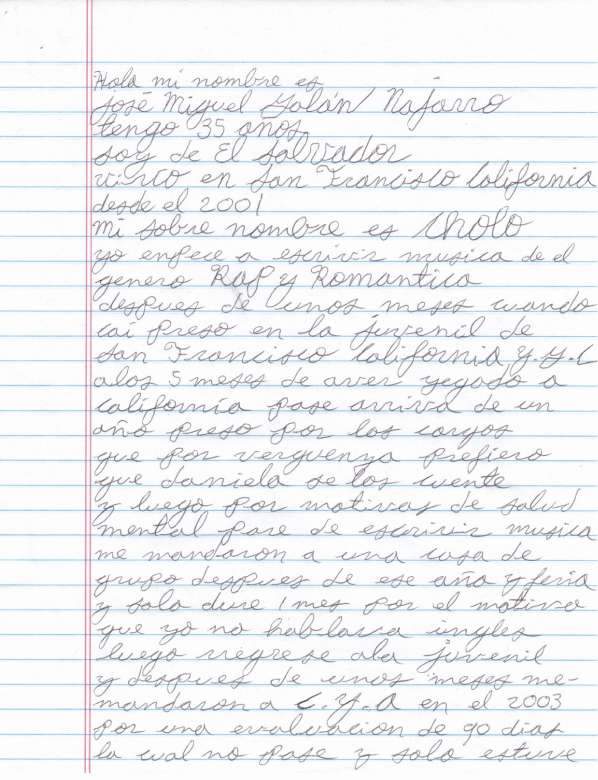 Hola mi nombre es
josé Miguel Galán Najarro
tengo 35 años
soy de El Salvador
vivo en San Francisco California
desde el 2001
mi sobre nombre es Cholo
yo enpece a escrivir musica de el
genero Rap y Romantica
despues de unos meses cuando
caí preso en la juvenil de
San Francisco California y.y.C
alos 5 meses de aver yegado a
california pase arriva de un
año preso por los cargos
que por verguenza prefiero
que daniela se los cuente
y luego por motivos de salud
mental pare de escrivir musica
me mandaron a una casa de
grupo despues de ese año y feria
y solo dure 1 mes por el motivo
que yo no hablava ingles
luego regrese ala juvenil
y despues de unos meses me-
mandaron a C.Y.A en el 2003
por una evaluacion de 90 dias
la cual no pase y solo estuve